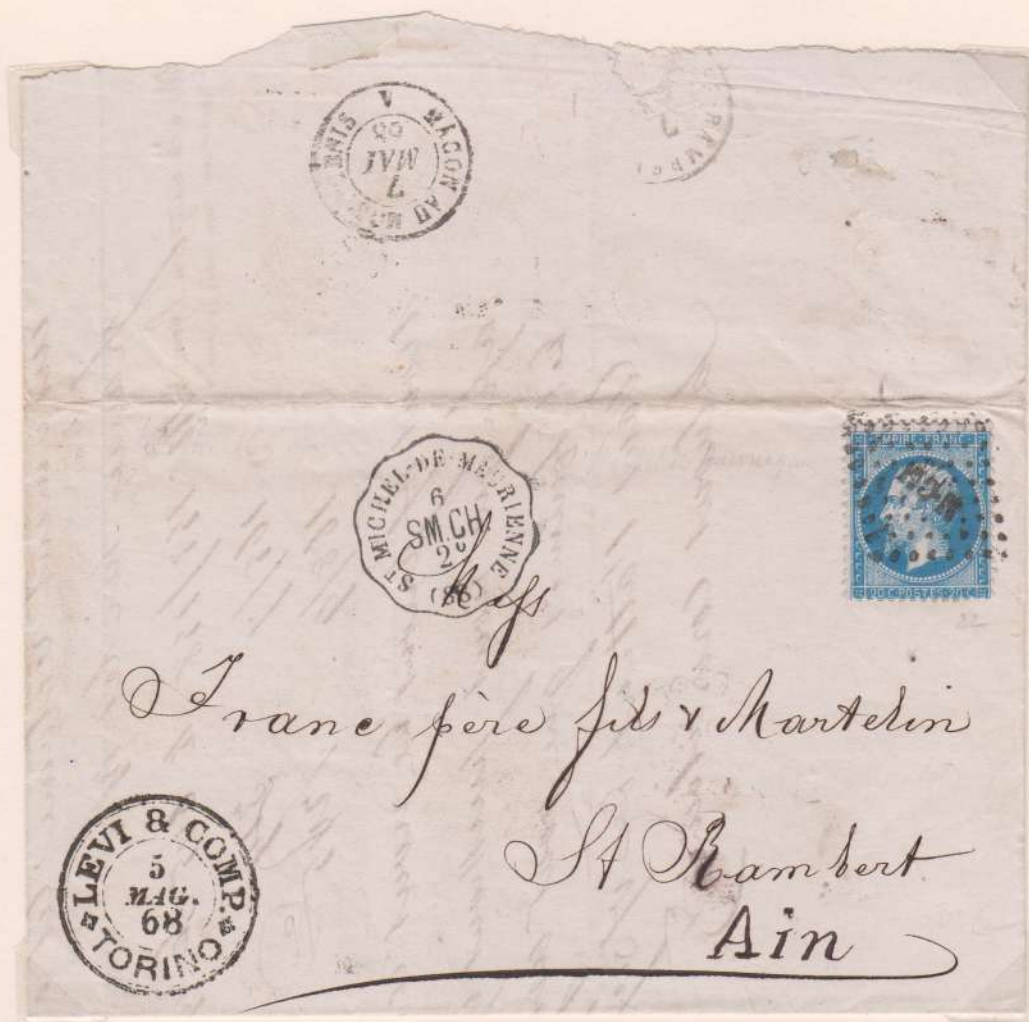 MACON AU MONT CENIS
7
MAI
68
A
7
ST MICHEL-DE-MAURIENNE
6
SM.CH.
2º
(88)
EMPIRE FRANC
20 C POSTES 20 C
22
Franc père fils & Martelin
St Rambert
Ain
LEVI & COMP.
5
MAG.
68
TORINO